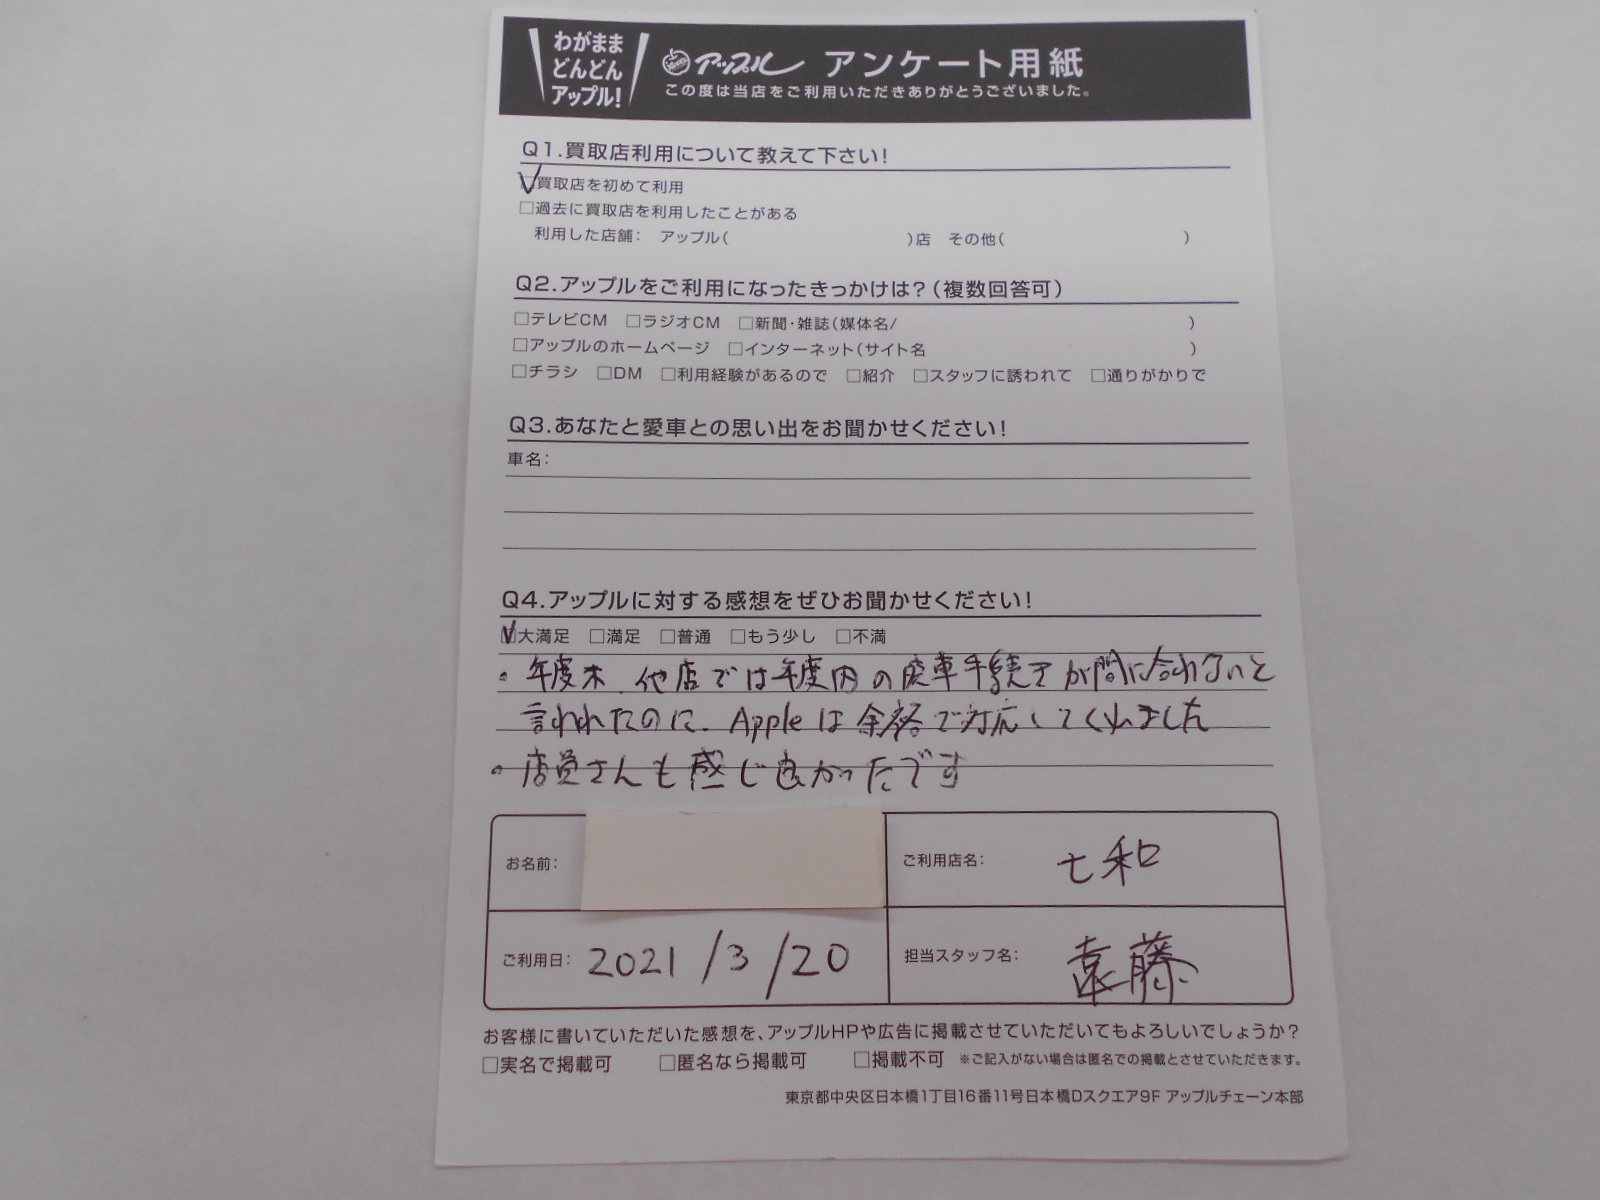 わがまま
どんどん
アップル!
アップル アンケート用紙
この度は当店をご利用いただきありがとうございました。
Q1.買取店利用について教えて下さい!
☑買取店を初めて利用
□過去に買取店を利用したことがある
利用した店舗: アップル( )店 その他( )
Q2.アップルをご利用になったきっかけは?(複数回答可)
□テレビCM □ラジオCM □新聞・雑誌(媒体名/ )
□アップルのホームページ □インターネット(サイト名 )
□チラシ □DM □利用経験があるので □紹介 □スタッフに誘われて □通りがかりで
Q3.あなたと愛車との思い出をお聞かせください!
車名:
Q4.アップルに対する感想をぜひお聞かせください!
☑大満足 □満足 □普通 □もう少し □不満
・年度末、他店では年度内の廃車手続きが間に合わないと
言われたのに、Appleは余裕で対応してくれました
・店員さんも感じ良かったです
お名前:
ご利用店名: 七和
ご利用日: 2021/3/20
担当スタッフ名: 遠藤
お客様に書いていただいた感想を、アップルHPや広告に掲載させていただいてもよろしいでしょうか?
□実名で掲載可 □匿名なら掲載可 □掲載不可 ※ご記入がない場合は匿名での掲載とさせていただきます。
東京都中央区日本橋1丁目16番11号日本橋Dスクエア9F アップルチェーン本部